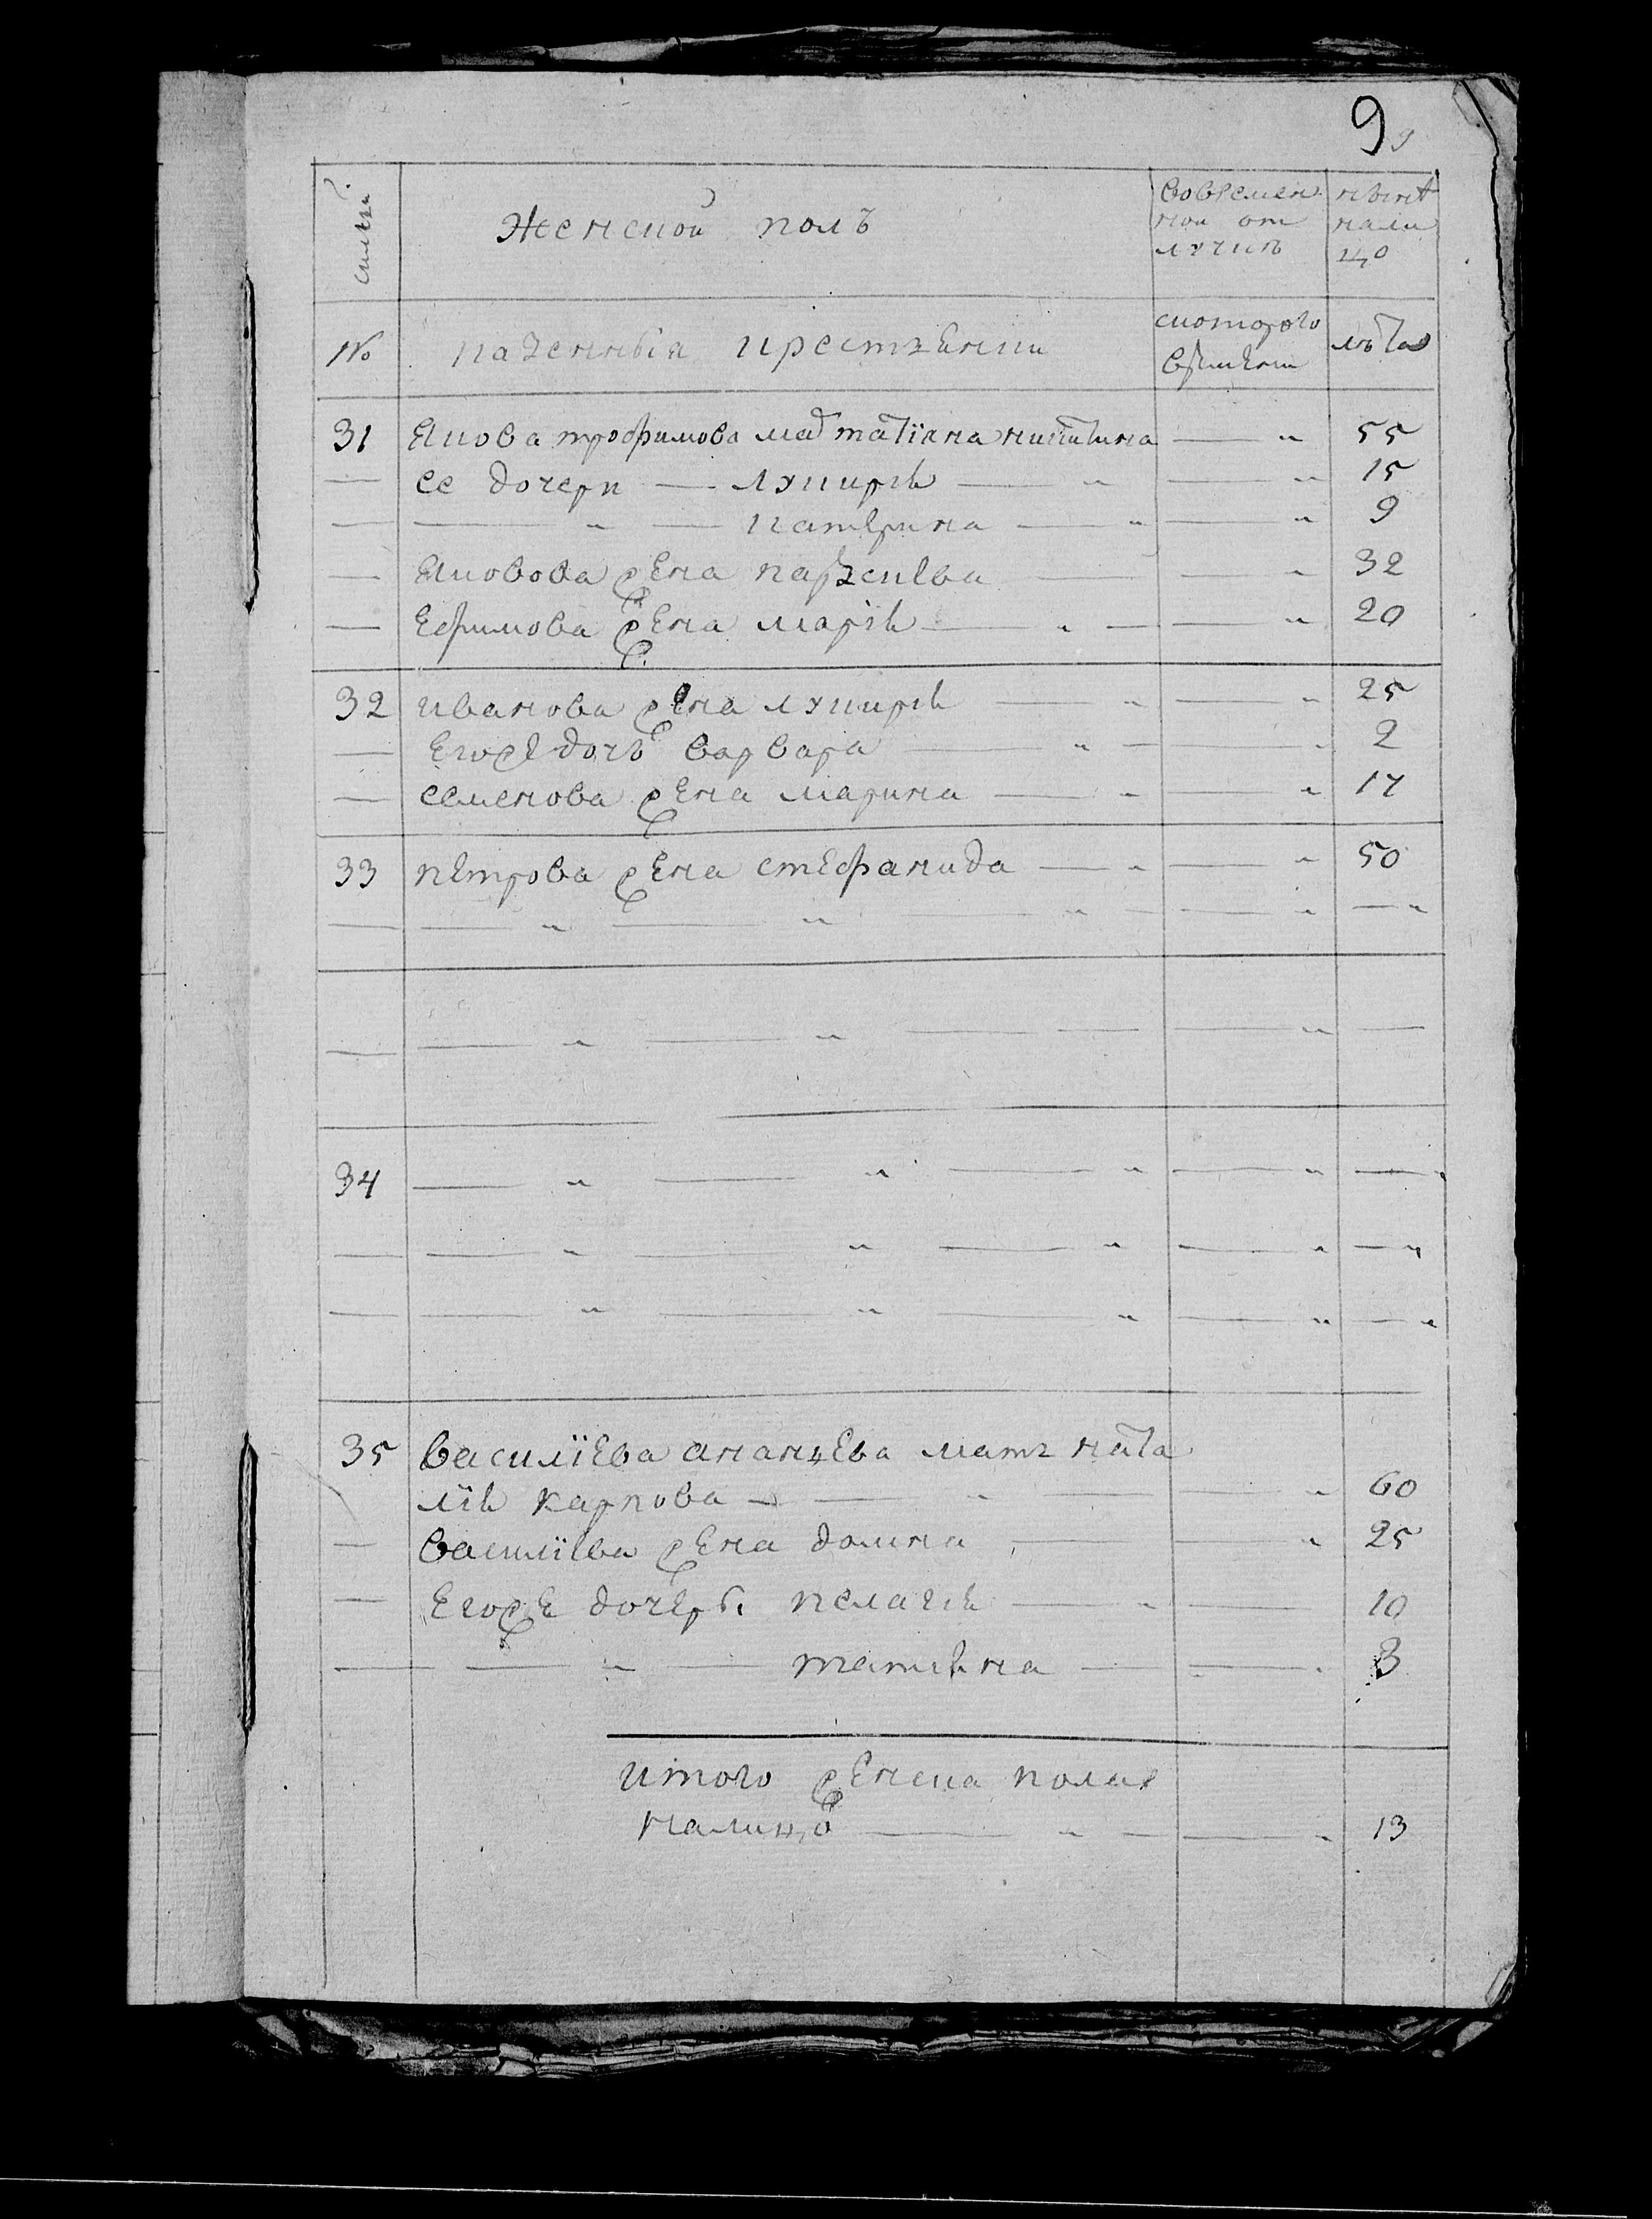 9 9
семьи
Женской полъ
вовремен
ной от
лучкѣ
нынѣ
нали
цо
№
казенныя крестьянки
скоторого
времени
лѣта
31 Якова трофимова мат татіяна никитина — " 55
— ее дочери — лукирья — " — " 15
— — " — катерина — " — " 9
— Яковова жена парасковья — — " 32
— Ефимова жена марья — " — " 20
32 иванова жена лукирья — " — " 25
— Егоже дочь варвара — " — " 2
— семенова жена марина — " — " 17
33 петрова жена стефанида — " — " 50
— — " — " — " — " — "
— — " — " — — — " —
34 — " — " — " — " — "
— — " — " — " — " — "
— — " — " — " — " — "
35 василіева ананьева мать ната
лія карпова — — " — — " 60
— василіева жена домна — — " 25
— Егоже дочери пелагия — " — 10
— — " — татияна — — " 3
итого женска пола
налицо — " — " 13